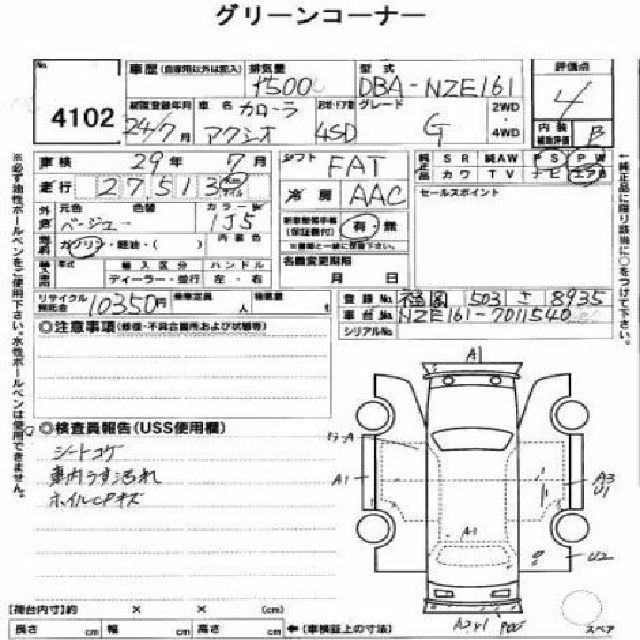 グリーンコーナー
No.
4102
車歴 (自家用以外は記入)
排気量
1500
型式
DBA-NZE161
評価点
4
初度登録年月
24/7月
車名
カローラ
アクシオ
ドア・形状
4SD
グレード
G
2WD
4WD
内装
補助評価
B
車検 29年 7月
走行 27,513
シフト
FAT
冷房
AAC
純正品 SR 純AW PS PW
カワ TV ナビ エアB
セールスポイント
外色 元色 色替 カラーNo.
ベージュー 1J5
燃料 ガソリン・軽油・( )
内装色
輸入車用 年式 輸入区分 ハンドル
ディーラー・並行 左・右
新車整備手帳
(保証書付) 有・無
※書類と一緒に保管下さい。
名義変更期限
月 日
リサイクル
預託金 10350円
乗車定員 人 積載量 kg
登録No. 福岡 503 さ 8935
車台No. NZE161-7011540
シリアルNo.
◎注意事項(修復・不具合箇所および状態等)
◎検査員報告(USS使用欄)
シートコゲ
車内うす汚れ
ホイルCPキズ
A1
ワ2・A
A1
A3
U1
A1
U2
A2 Y1
スペア
【荷台内寸】約 × × (cm)
長さ cm 幅 cm 高さ cm ←(車検証上の寸法)
※必ず油性ボールペンをご使用下さい。水性ボールペンは使用できません。
↑純正品に限り該当に○をつけて下さい。